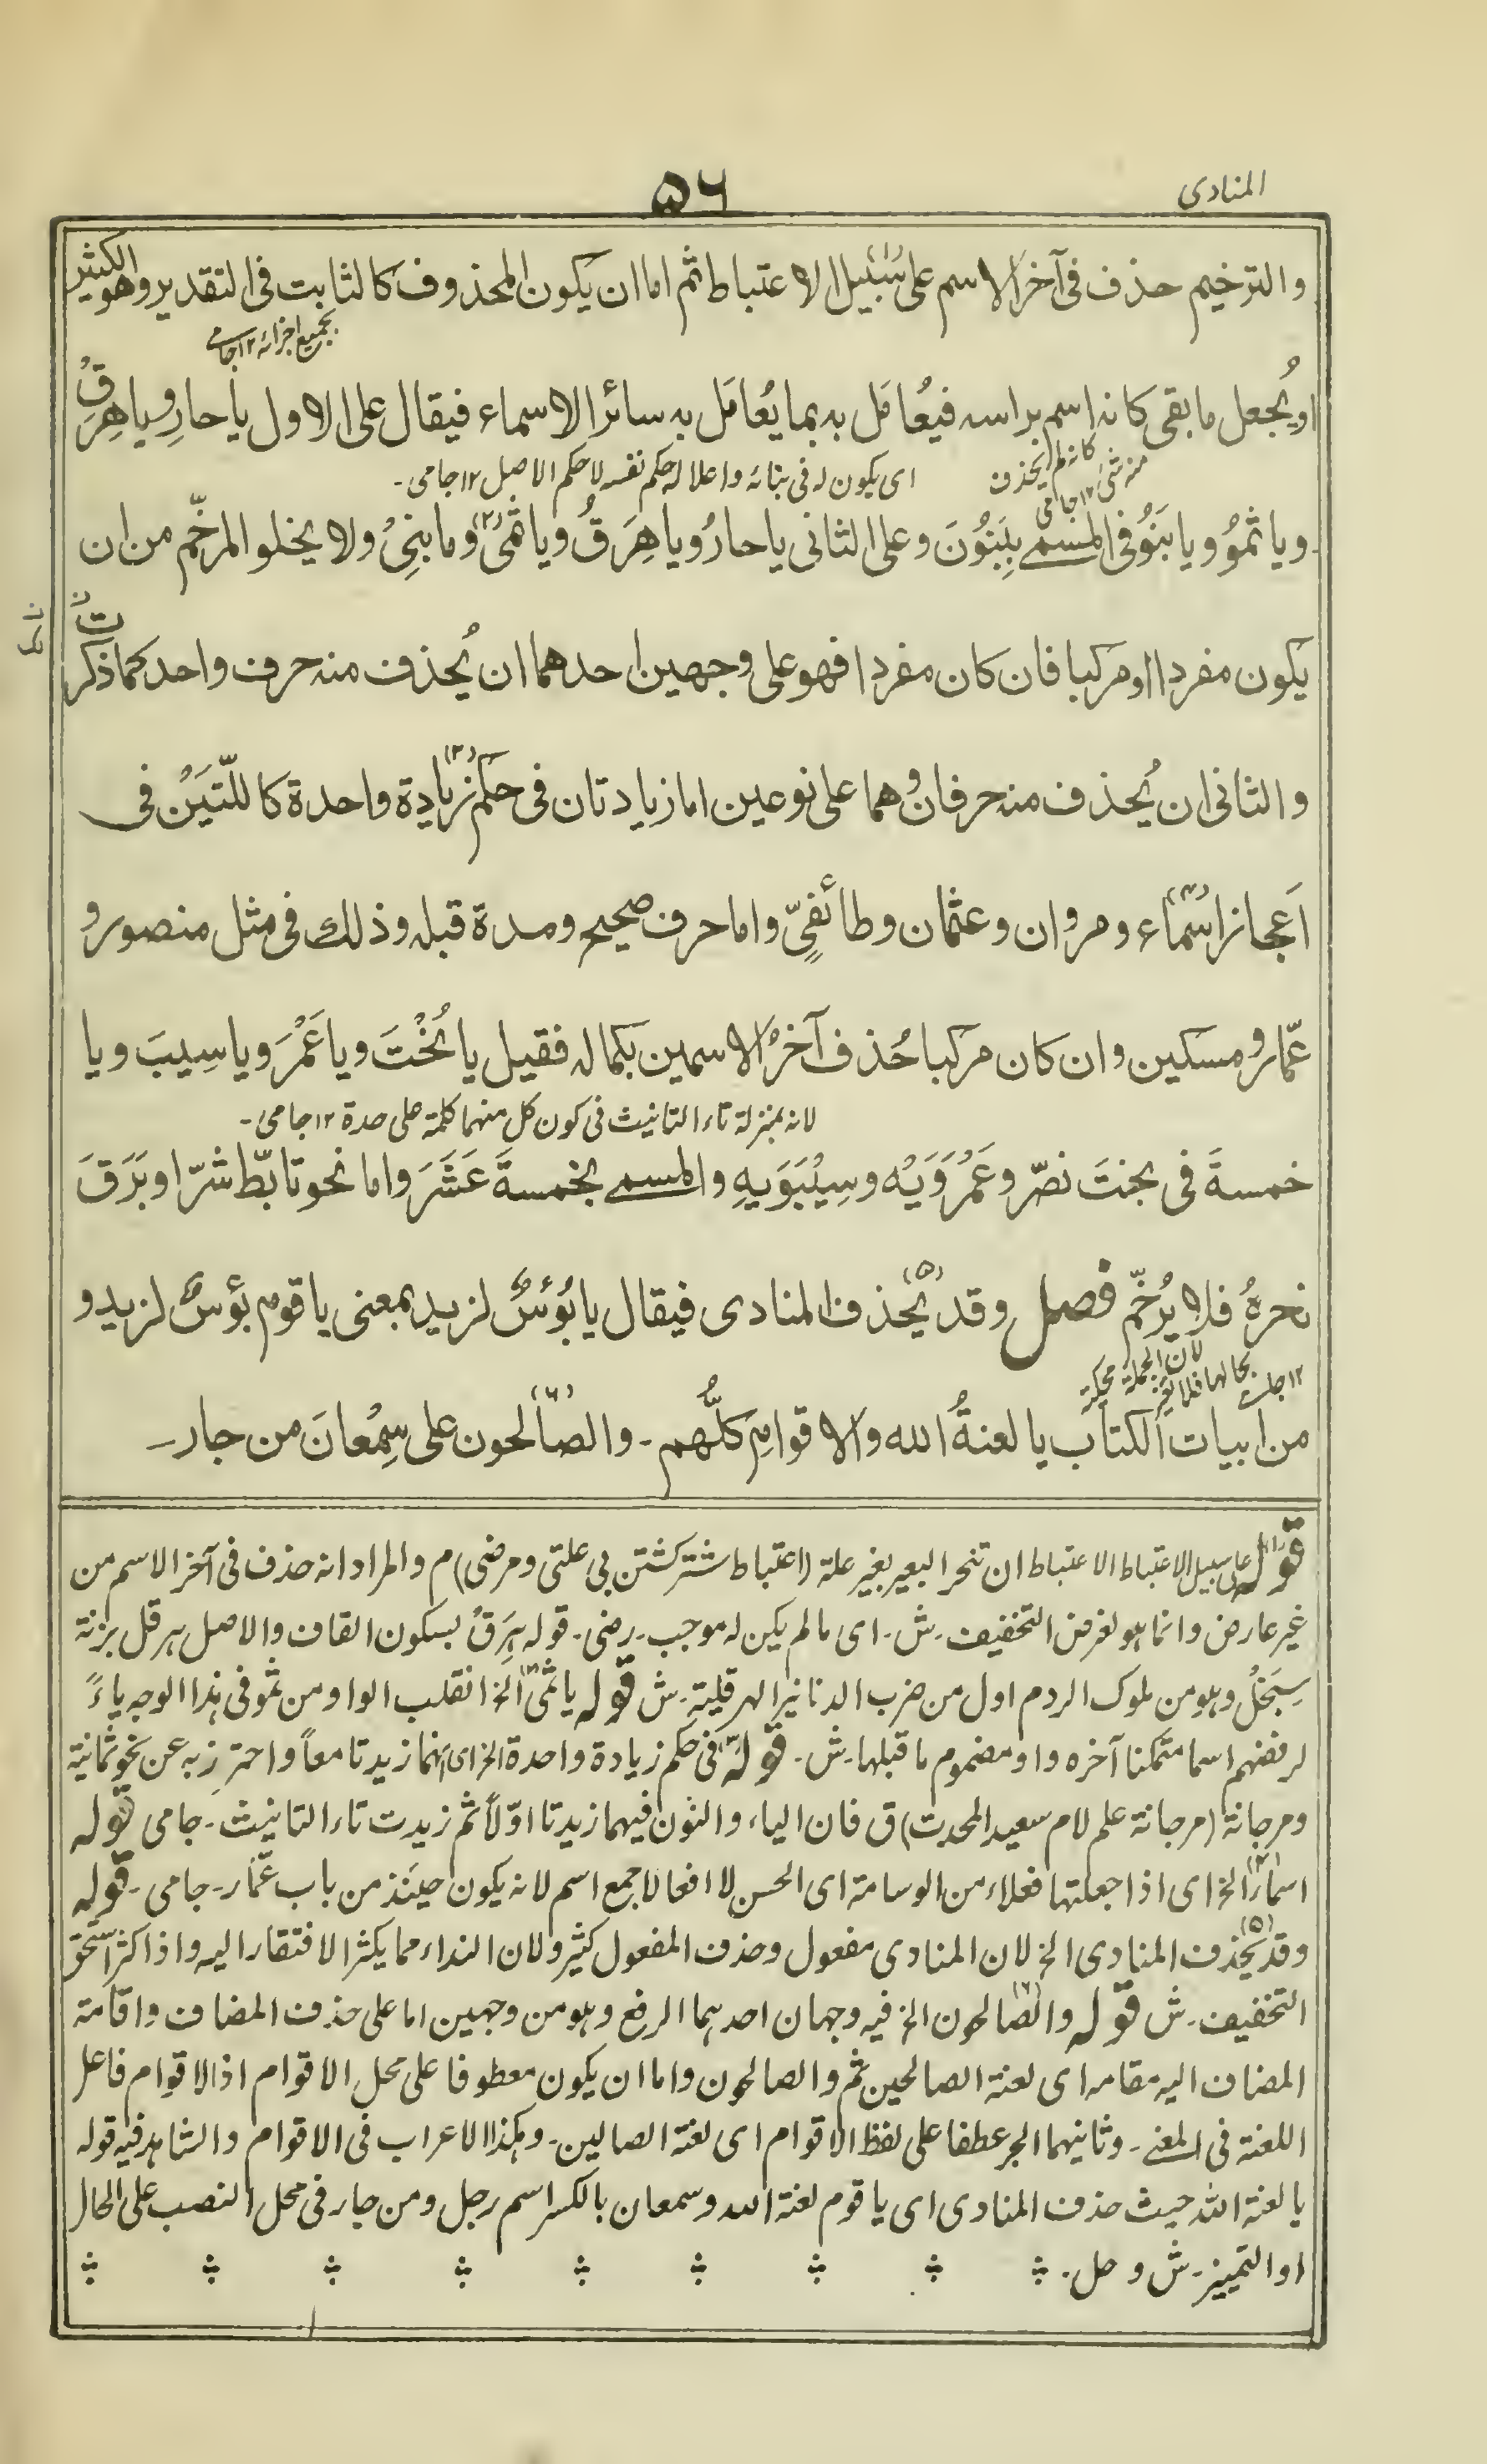 المنادى
٥٦
والترخيم حذف فى آخر الاسم على سَبيل الاعتباط ثم اما ان يكون المحذوف كالثابت فى التقدير وهو الكثير
بجميع اجزائه ١٢ جامى
او يُجعل ما بقى كانه اسم براسه فيُعامَل به بما يُعامَل به سائر الاسماء فيقال على الاول يا حارِ ويا هِرَقْ
كانه لم يحذف منه شئ ١٢ جامى
اى يكون له فى بنائه واعلاله حكم نفسه لا حكم الاصل ١٢ جامى۔
ويا ثمُوْ ويا بَنُوْ فى المسمى بِبَنُوْنَ وعلى الثانى يا حارُ ويا هِرَقُ ويا ثمِىْ (٢) وما بنِىْ ولا يخلو المرخّم من ان
يكون مفردا او مركبا فان كان مفردا فهو على وجهين احدهما ان يُحذف منه حرف واحد كما ذكرت
والثانى ان يُحذف منه حرفان وهما على نوعين اما زيادتان فى حكم (٣) زيادة واحدة كاللّتَيْن فى
اَعجاز اسْماء (٤) ومروان وعثمان وطائفىّ واما حرف صحيح ومدة قبله وذلك فى مثل منصور و
عمّار ومسكين وان كان مركبا حُذف آخرُ الاسمين بكماله فقيل يا بُخْتَ ويا عَمْرَ ويا سِيبَ ويا
لانه بمنزلة تاء التانيث فى كون كل منهما كلمة على حدة ١٢ جامى۔
خمسةَ فى بختَ نصّر وعَمْرَوَيْه وسِيْبَوَيهِ والمسمى بخمسةَ عَشَرَ واما نحو تابّط شرّا وبَرَقَ
نحرهُ فلا يُرخّم فصل وقد (٥) يُحذف المنادى فيقال يا بُؤسٌ لزيد بمعنى يا قوم بؤسٌ لزيد و
لان الجملة محكية بحالها فلا تغير ١٢ جامى
من ابيات الكتاب يا لعنةُ الله والاقوامِ كلُّهم ۔ والصّالحون (٦) على سِمْعانَ من جار۔
قوله (١) على سبيل الاعتباط الاعتباط ان تنحر البعير بغير علة (اعتباط شتر كشتن بى علتى ومرضى) م والمراد انه حذف فى آخر الاسم من
غير عارض وانما هو لغرض التخفيف۔ ش۔ اى ما لم يكن له موجب۔ رضى۔ قوله هِرَقْ بسكون القاف والاصل هرقل بزنة
سِبَحْلٌ وهو من ملوك الروم اول من ضرب الدنانير الهرقلية۔ ش قوله يا ثمى (٢) الخ انقلب الواو من ثمو فى هذا الوجه ياءً
لرفضهم اسما متمكنا آخره واو مضموم ما قبلها۔ ش۔ قوله (٣) فى حكم زيادة واحدة الخ اى انهما زيدتا معاً واحترز به عن نحو ثمانية
ومرجانة (مرجانة علم لام سعيد المحدث) ق فان الياء والنون فيهما زيدتا اوّلاً ثم زيدت تاء التانيث۔ جامى قوله
اسماء (٤) الخ اى اذا جعلتها فعلاء من الوسامة اى الحسن لا افعالا جمع اسم لانه يكون حينئذ من باب عمّار۔ جامى۔ قوله
وقد (٥) يحذف المنادى الخ لان المنادى مفعول وحذف المفعول كثير ولان النداء مما يكثر الافتقار اليه واذا كثر استحق
التخفيف۔ ش قوله والصالحون (٦) الخ فيه وجهان احدهما الرفع وهو من وجهين اما على حذف المضاف واقامة
المضاف اليه مقامه اى لعنة الصالحين ثم والصالحون واما ان يكون معطوفا على محل الاقوام اذ الاقوام فاعل
اللعنة فى المعنى۔ وثانيهما الجر عطفا على لفظ الاقوام اى لعنة الصالين۔ وهكذا الاعراب فى الاقوام والشاهد فيه قوله
يا لعنة الله حيث حذف المنادى اى يا قوم لعنة الله وسمعان بالكسر اسم رجل ومن جار فى محل النصب على الحال
او التميز۔ ش و حل۔